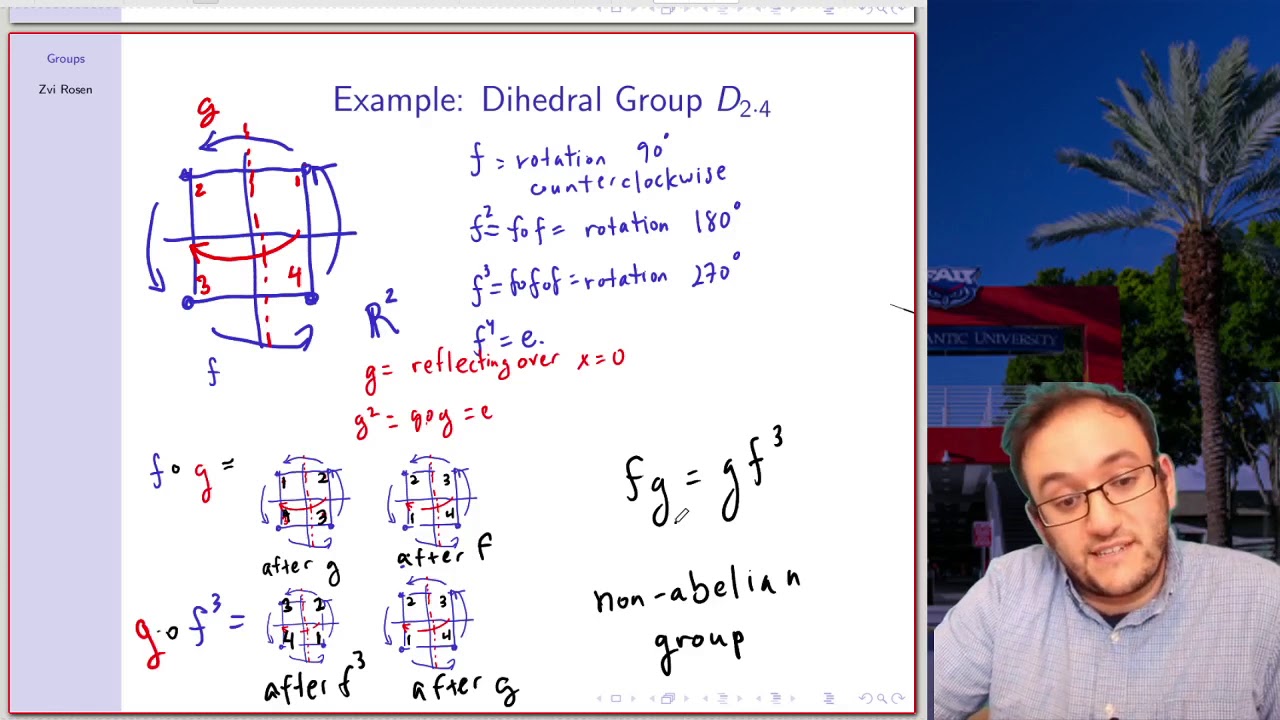 Groups
Zvi Rosen
Example: Dihedral Group D₂.₄
g
2 1
3 4
f
R²
f = rotation 90°
counterclockwise
f² = f∘f = rotation 180°
f³ = f∘f∘f = rotation 270°
f⁴ = e.
g = reflecting over x = 0
g² = g∘g = e
f ∘ g =
1 2
4 3
after g
2 3
1 4
after f
g ∘ f³ =
3 2
4 1
after f³
2 3
1 4
after g
fg = gf³
non-abelian
group
FAU
ANTIC UNIVERSITY